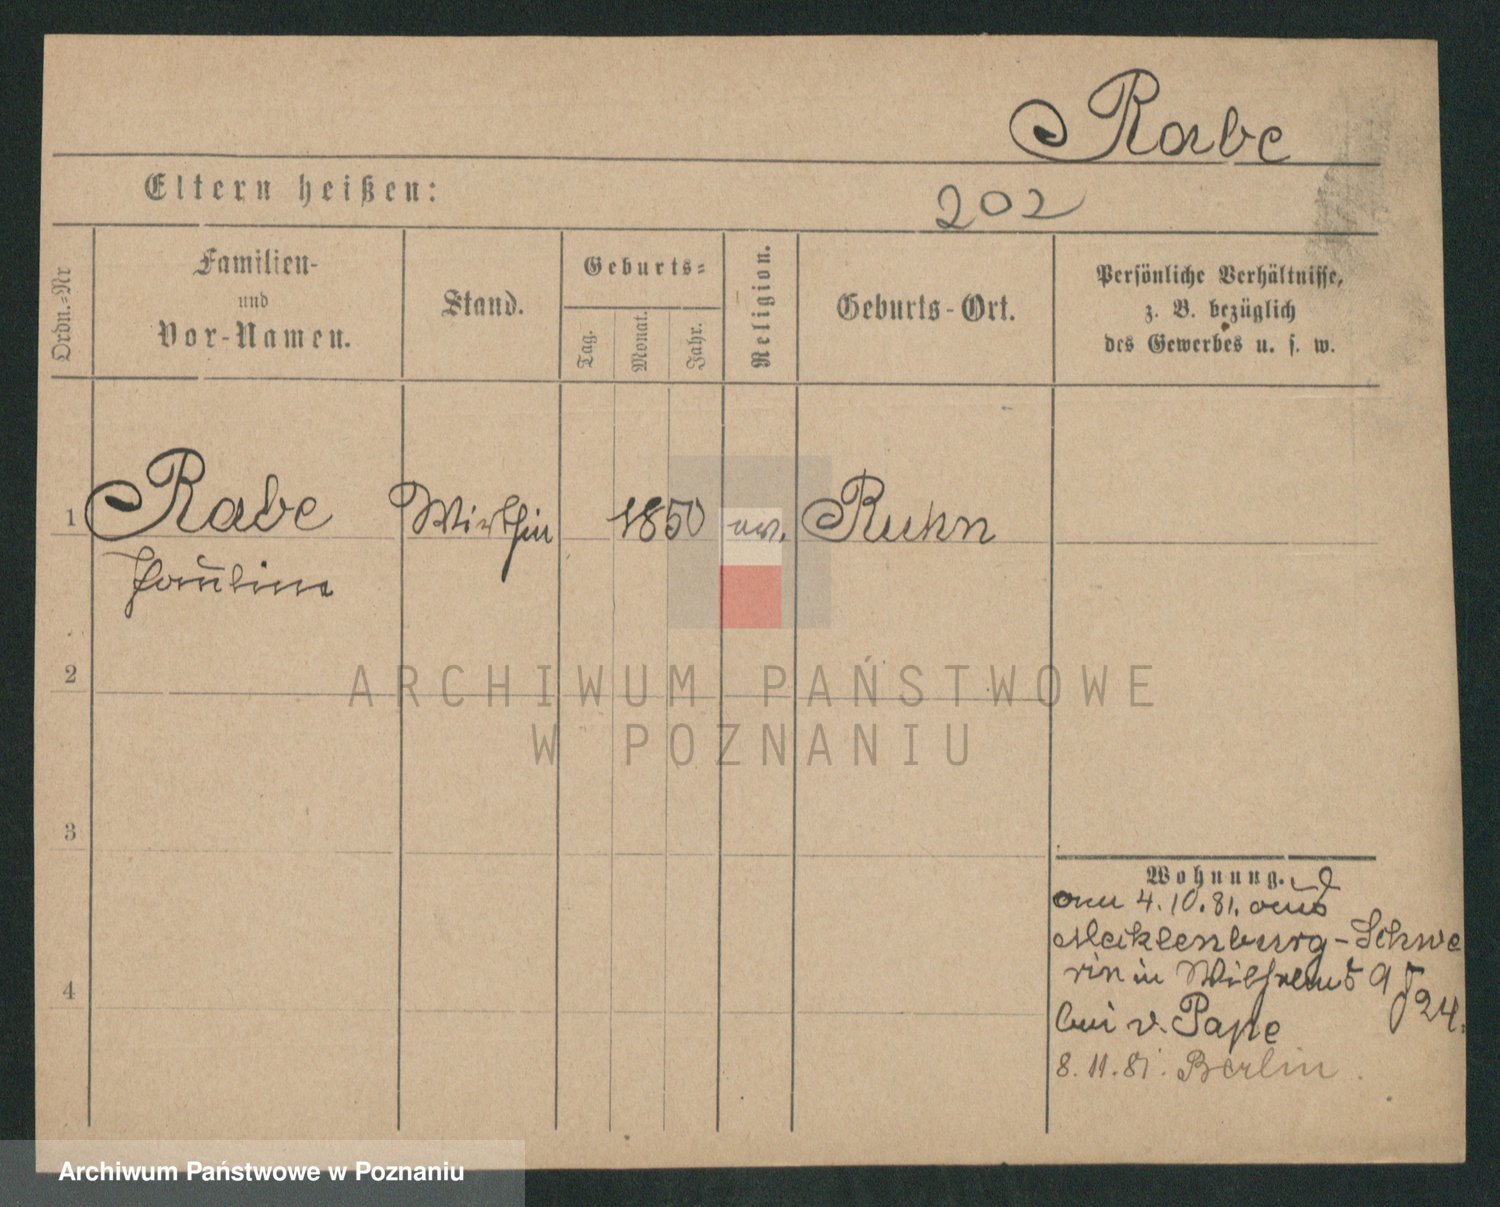 Rabe
Eltern heißen:
202
Ordn.-Nr
Familien-
und
Vor-Namen.
Stand.
Geburts-
Tag.
Monat.
Jahr.
Religion.
Geburts-Ort.
Persönliche Verhältnisse,
z. B. bezüglich
des Gewerbes u. s. w.
1 Rabe Wirthin 1850 ev. Ruhn
Pauline
2
ARCHIWUM PAŃSTWOWE
W POZNANIU
3
4
Wohnung.
am 4.10.81. aus
Mecklenburg-Schwe
rin in Wilhelms
24.
bei v. Pape
8.11.81. Berlin
Archiwum Państwowe w Poznaniu